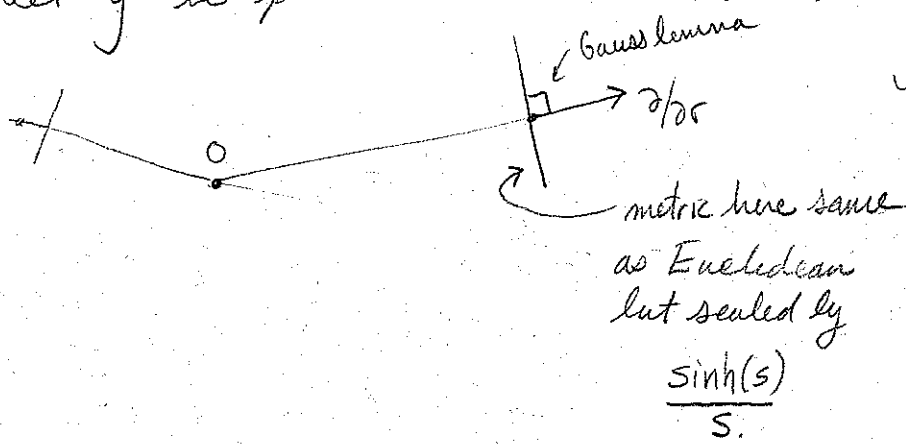 Gauss lemma
∂/∂r
O
metric here same
as Euclidean
but scaled by
sinh(s)
s.